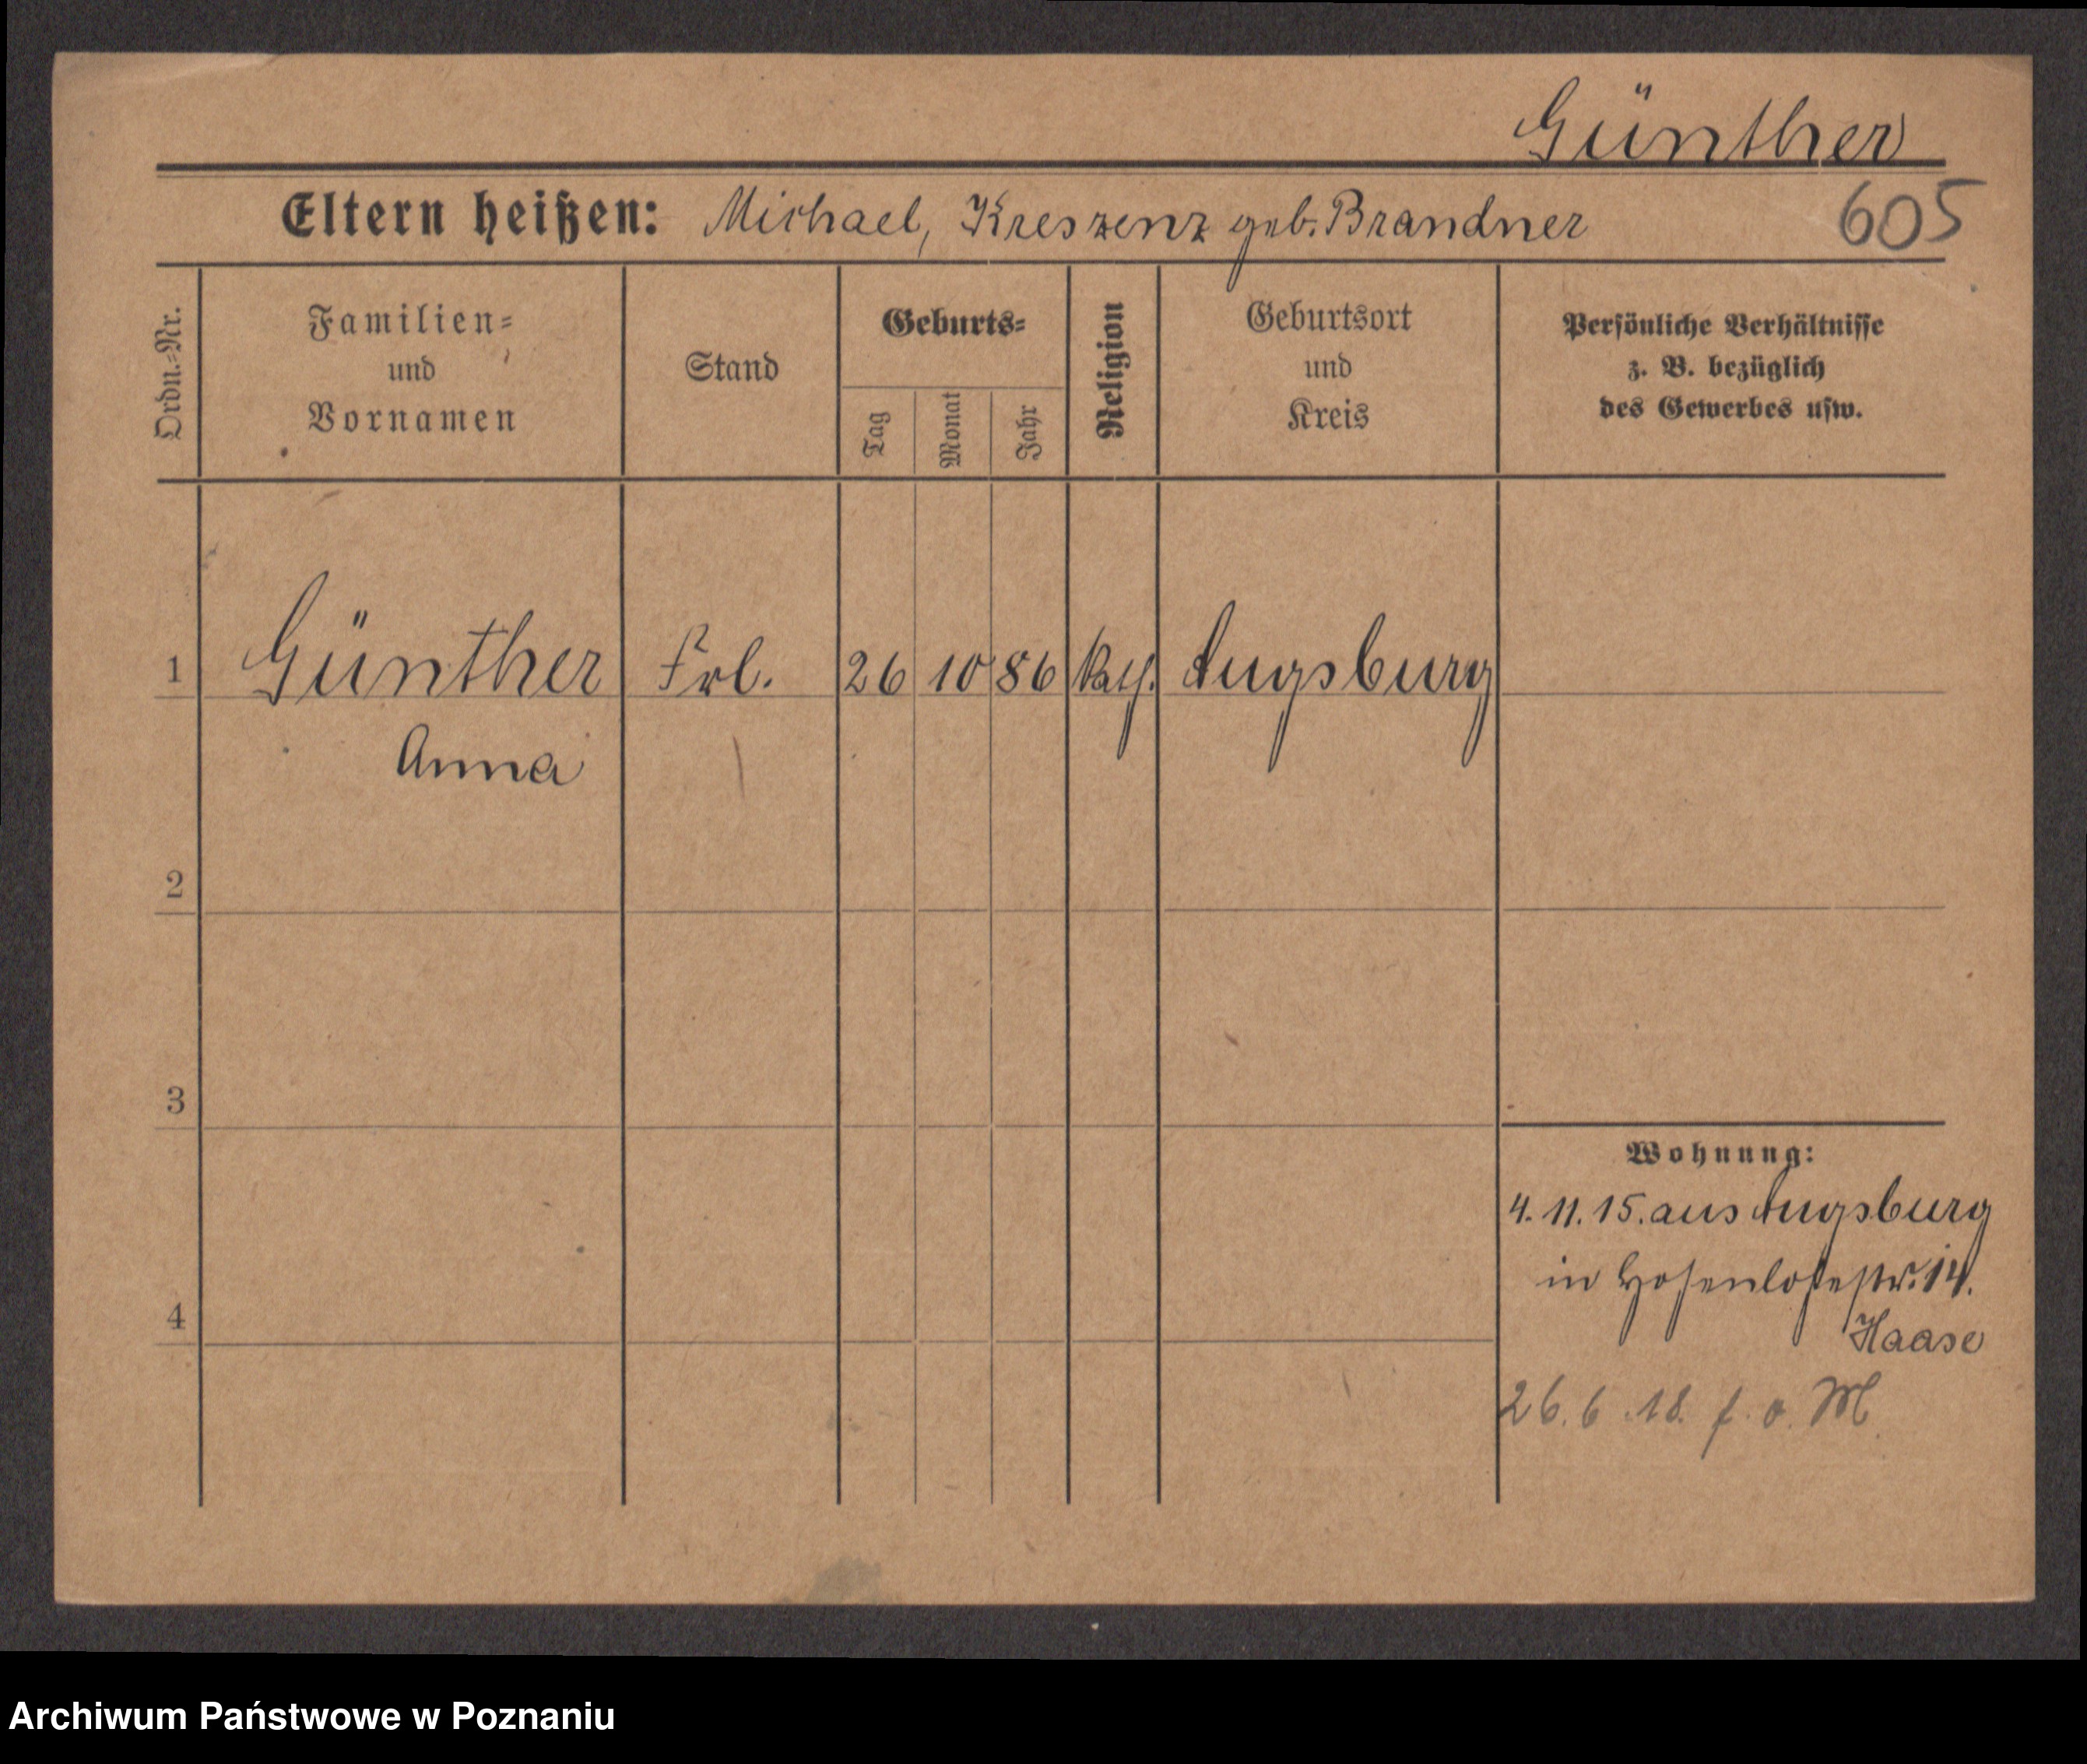 Günther
Eltern heißen: Michael, Kreszenz geb. Brandner 605
Ordn.=Nr.
Familien=
und
Vornamen
Stand
Geburts=
Tag
Monat
Jahr
Religion
Geburtsort
und
Kreis
Persönliche Verhältnisse
z. B. bezüglich
des Gewerbes usw.
1 Günther Frl. 26 10 86 kath. Augsburg
Anna
2
3
4
Wohnung:
4. 11. 15. aus Augsburg
in Hohenlohestr. 14.
Haase
26. 6. 18. f. o. M
Archiwum Państwowe w Poznaniu